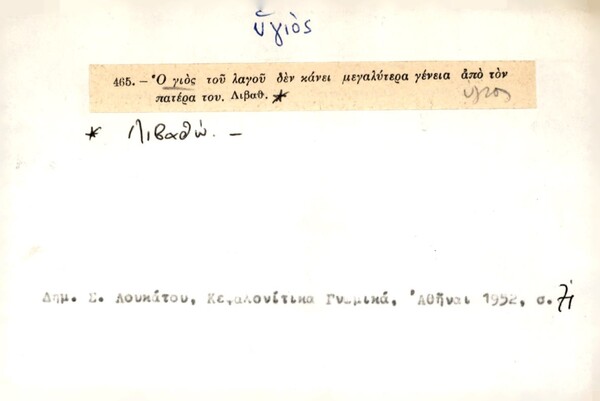 ὑγιὸς
465. – Ὁ γιὸς τοῦ λαγοῦ δὲν κάνει μεγαλύτερα γένεια ἀπὸ τὸν
πατέρα του. Λιβαθ. *
ὑγιος
* Λιβαθώ. –
Δημ. Σ. Λουκάτου, Κεφαλονίτικα Γνωμικά, Ἀθῆναι 1952, σ.